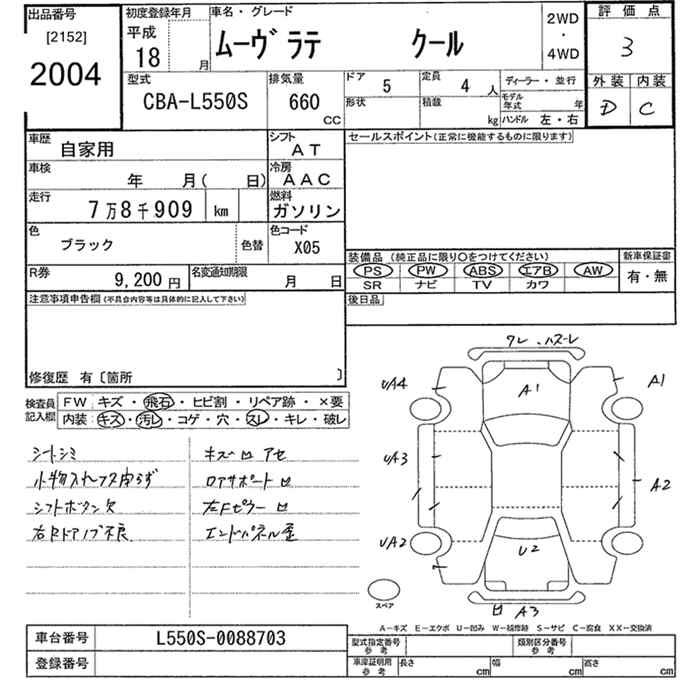 出品番号
[2152]
2004
初度登録年月
平成
18 月
車名・グレード
ムーヴ ラテ クール
2WD
・
4WD
評価点
3
型式
CBA-L550S
排気量
660
CC
ドア 5
形状
定員 4 人
積載 kg
ディーラー・並行
モデル年式 年
ハンドル 左・右
外装 内装
D C
車歴
自家用
シフト
AT
車検
年 月( 日)
冷房
AAC
走行
7万8千909 km
燃料
ガソリン
色
ブラック
色替
色コード
X05
R券
9,200 円
名変通知期限
月 日
セールスポイント(正常に機能するものに限ります)
装備品 (純正品に限り〇をつけてください)
PS PW ABS エアB AW
SR ナビ TV カワ
新車保証書
有・無
後日品
注意事項申告欄(不具合内容等は具体的に記入して下さい)
修復歴 有〔箇所 〕
検査員
記入欄
FW:キズ・飛石・ヒビ割・リペア跡・×要
内装:キズ・汚レ・コゲ・穴・スレ・キレ・破レ
シートシミ
小物入れフタ
シフトボタン欠
右RドアノブN不良
キズ 凹 アセ
ロアサポート凹
左Fピラー凹
エンドパネル歪
ワレ、ハズ-レ
UA4
A1
A1
UA3
A2
UA2
U2
凹 A3
スペア
A-キズ E-エクボ U-凹み W-補修跡 S-サビ C-腐食 XX-交換済
車台番号 L550S-0088703
登録番号
型式指定番号
参考
類別区分番号
参考
車庫証明用
参考
長さ cm
幅 cm
高さ cm